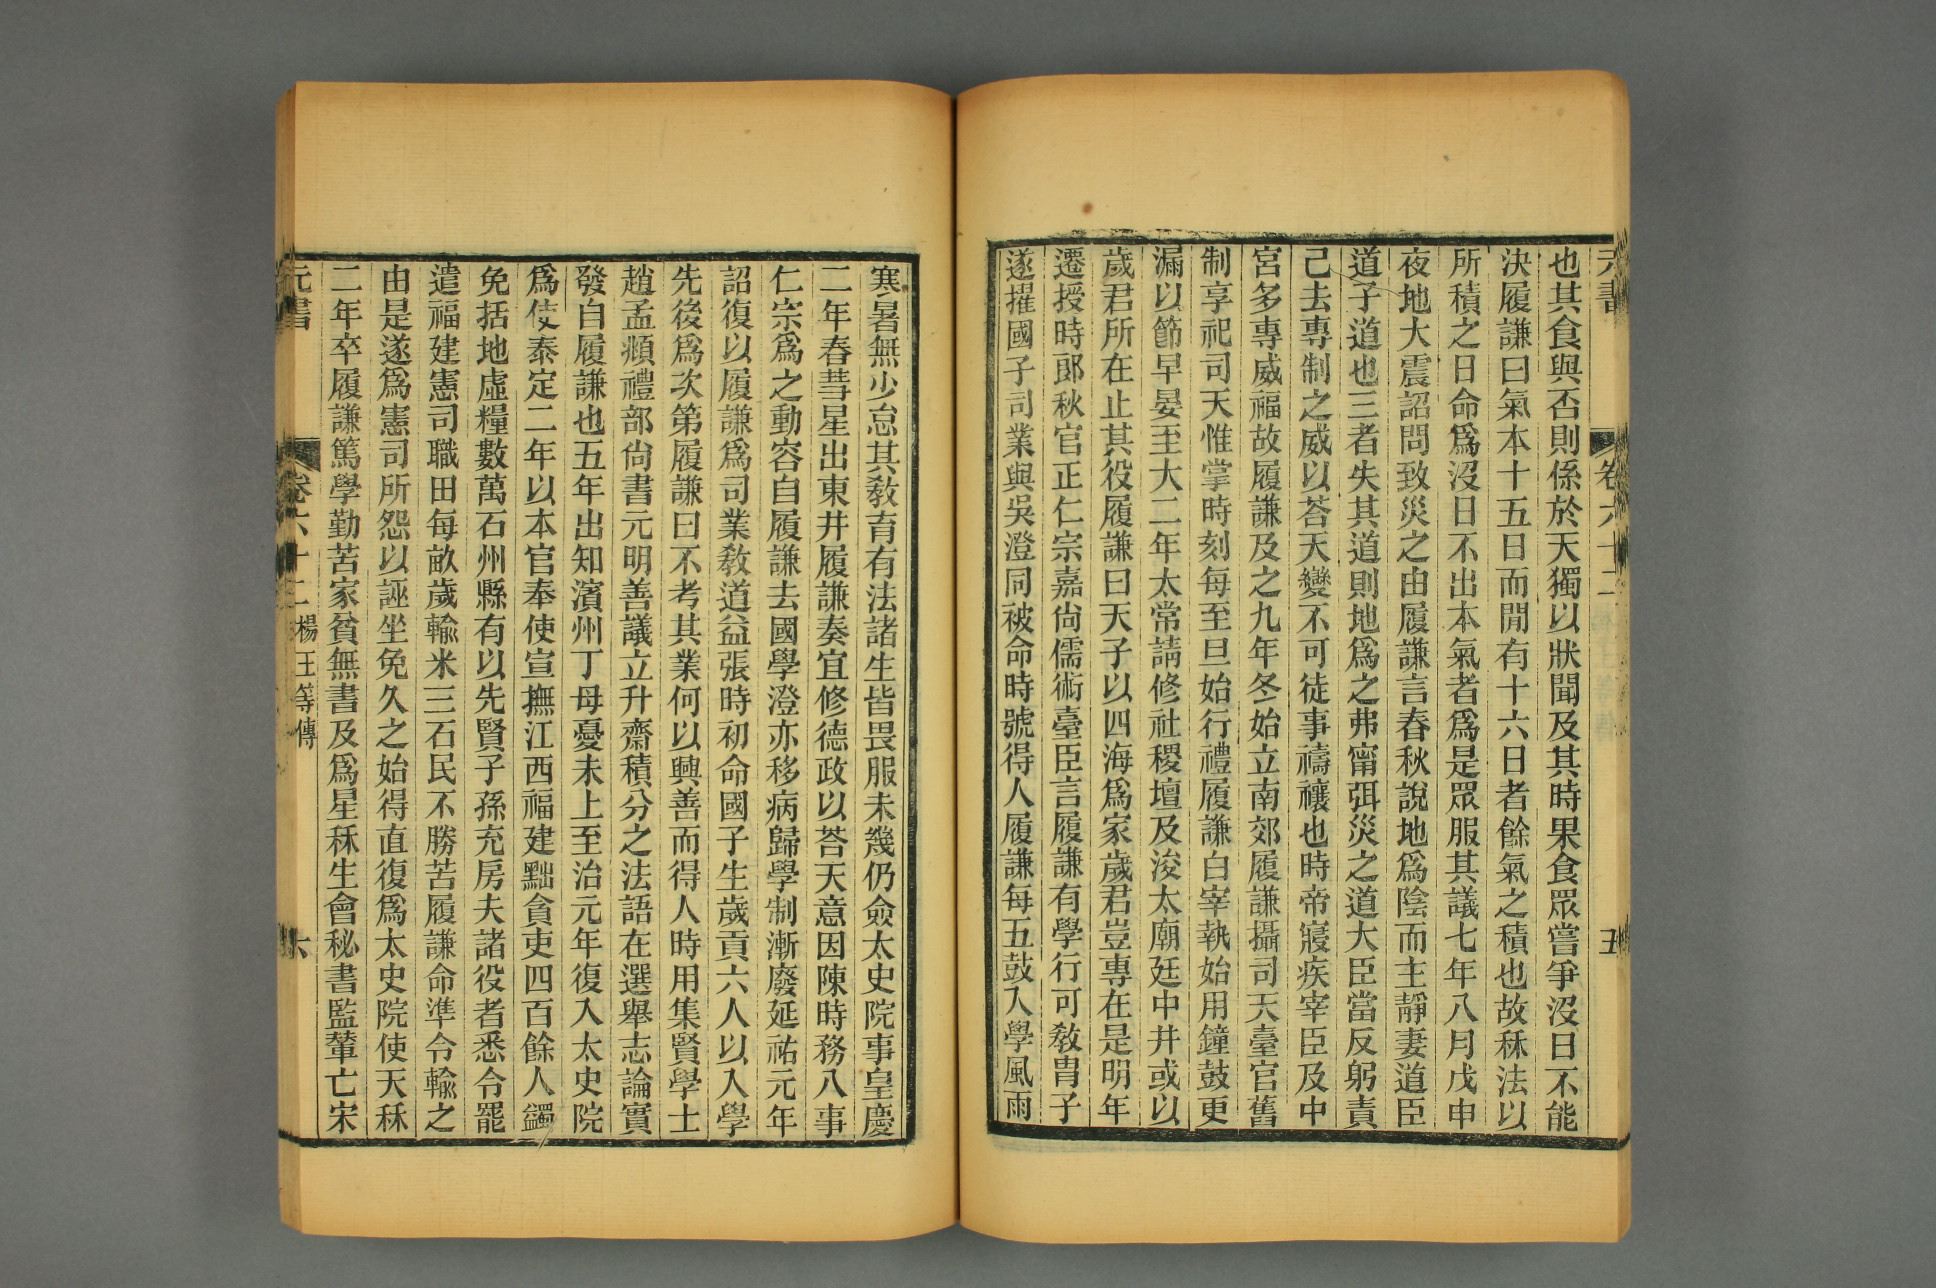 元書
卷六十二
五
也其食與否則係於天獨以狀聞及其時果食眾嘗爭沒日不能
決履謙曰氣本十五日而閒有十六日者餘氣之積也故秝法以
所積之日命爲沒日不出本氣者爲是眾服其議七年八月戊申
夜地大震詔問致災之由履謙言春秋說地爲陰而主靜妻道臣
道子道也三者失其道則地爲之弗甯弭災之道大臣當反躬責
己去專制之威以荅天變不可徒事禱禳也時帝寢疾宰臣及中
宮多專威福故履謙及之九年冬始立南郊履謙攝司天臺官舊
制享祀司天惟掌時刻每至旦始行禮履謙白宰執始用鐘鼓更
漏以節早晏至大二年太常請修社稷壇及浚太廟廷中井或以
歲君所在止其役履謙曰天子以四海爲家歲君豈專在是明年
遷授時郎秋官正仁宗嘉尙儒術臺臣言履謙有學行可敎冑子
遂擢國子司業與吳澄同被命時號得人履謙每五鼓入學風雨
寒暑無少怠其敎育有法諸生皆畏服未幾仍僉太史院事皇慶
二年春彗星出東井履謙奏宜修德政以荅天意因陳時務八事
仁宗爲之動容自履謙去國學澄亦移病歸學制漸廢延祐元年
詔復以履謙爲司業敎道益張時初命國子生歲貢六人以入學
先後爲次第履謙曰不考其業何以興善而得人時用集賢學士
趙孟頫禮部尙書元明善議立升齋積分之法語在選舉志論實
發自履謙也五年出知濱州丁母憂未上至治元年復入太史院
爲使泰定二年以本官奉使宣撫江西福建黜貪吏四百餘人蠲
免括地虛糧數萬石州縣有以先賢子孫充房夫諸役者悉令罷
遣福建憲司職田每畝歲輸米三石民不勝苦履謙命準令輸之
由是遂爲憲司所怨以誣坐免久之始得直復爲太史院使天秝
二年卒履謙篤學勤苦家貧無書及爲星秝生會秘書監輦亡宋
元書
卷六十二 楊王等傳
六